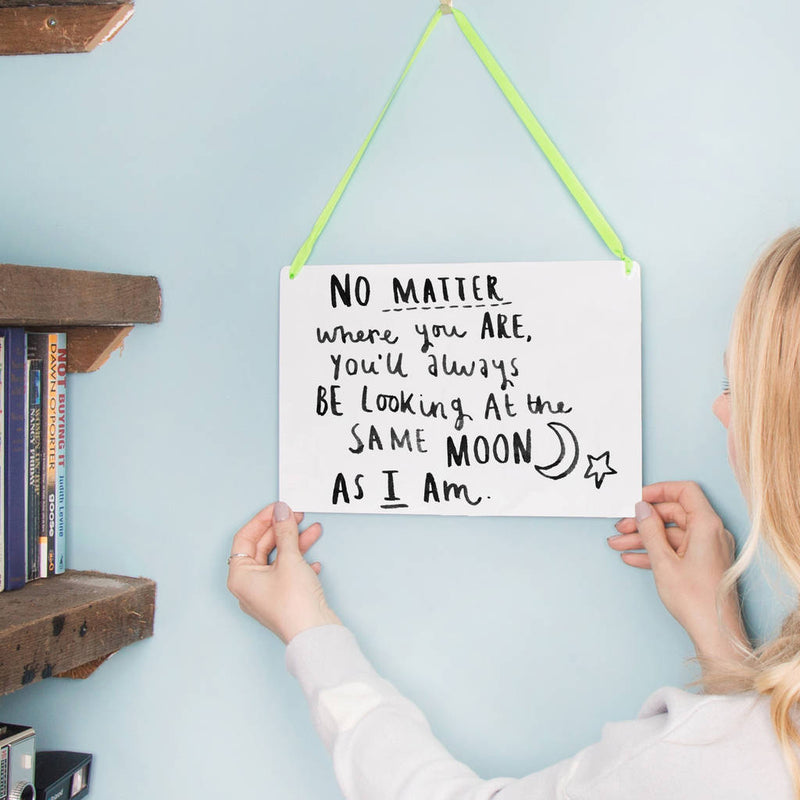 NO MATTER
where you ARE,
You'll always
BE Looking At the
SAME MOON
As I Am.
NOT BUYING IT Judith Levine
DAWN O'PORTER goose
WOMEN ON TOP NANCY FRIDAY